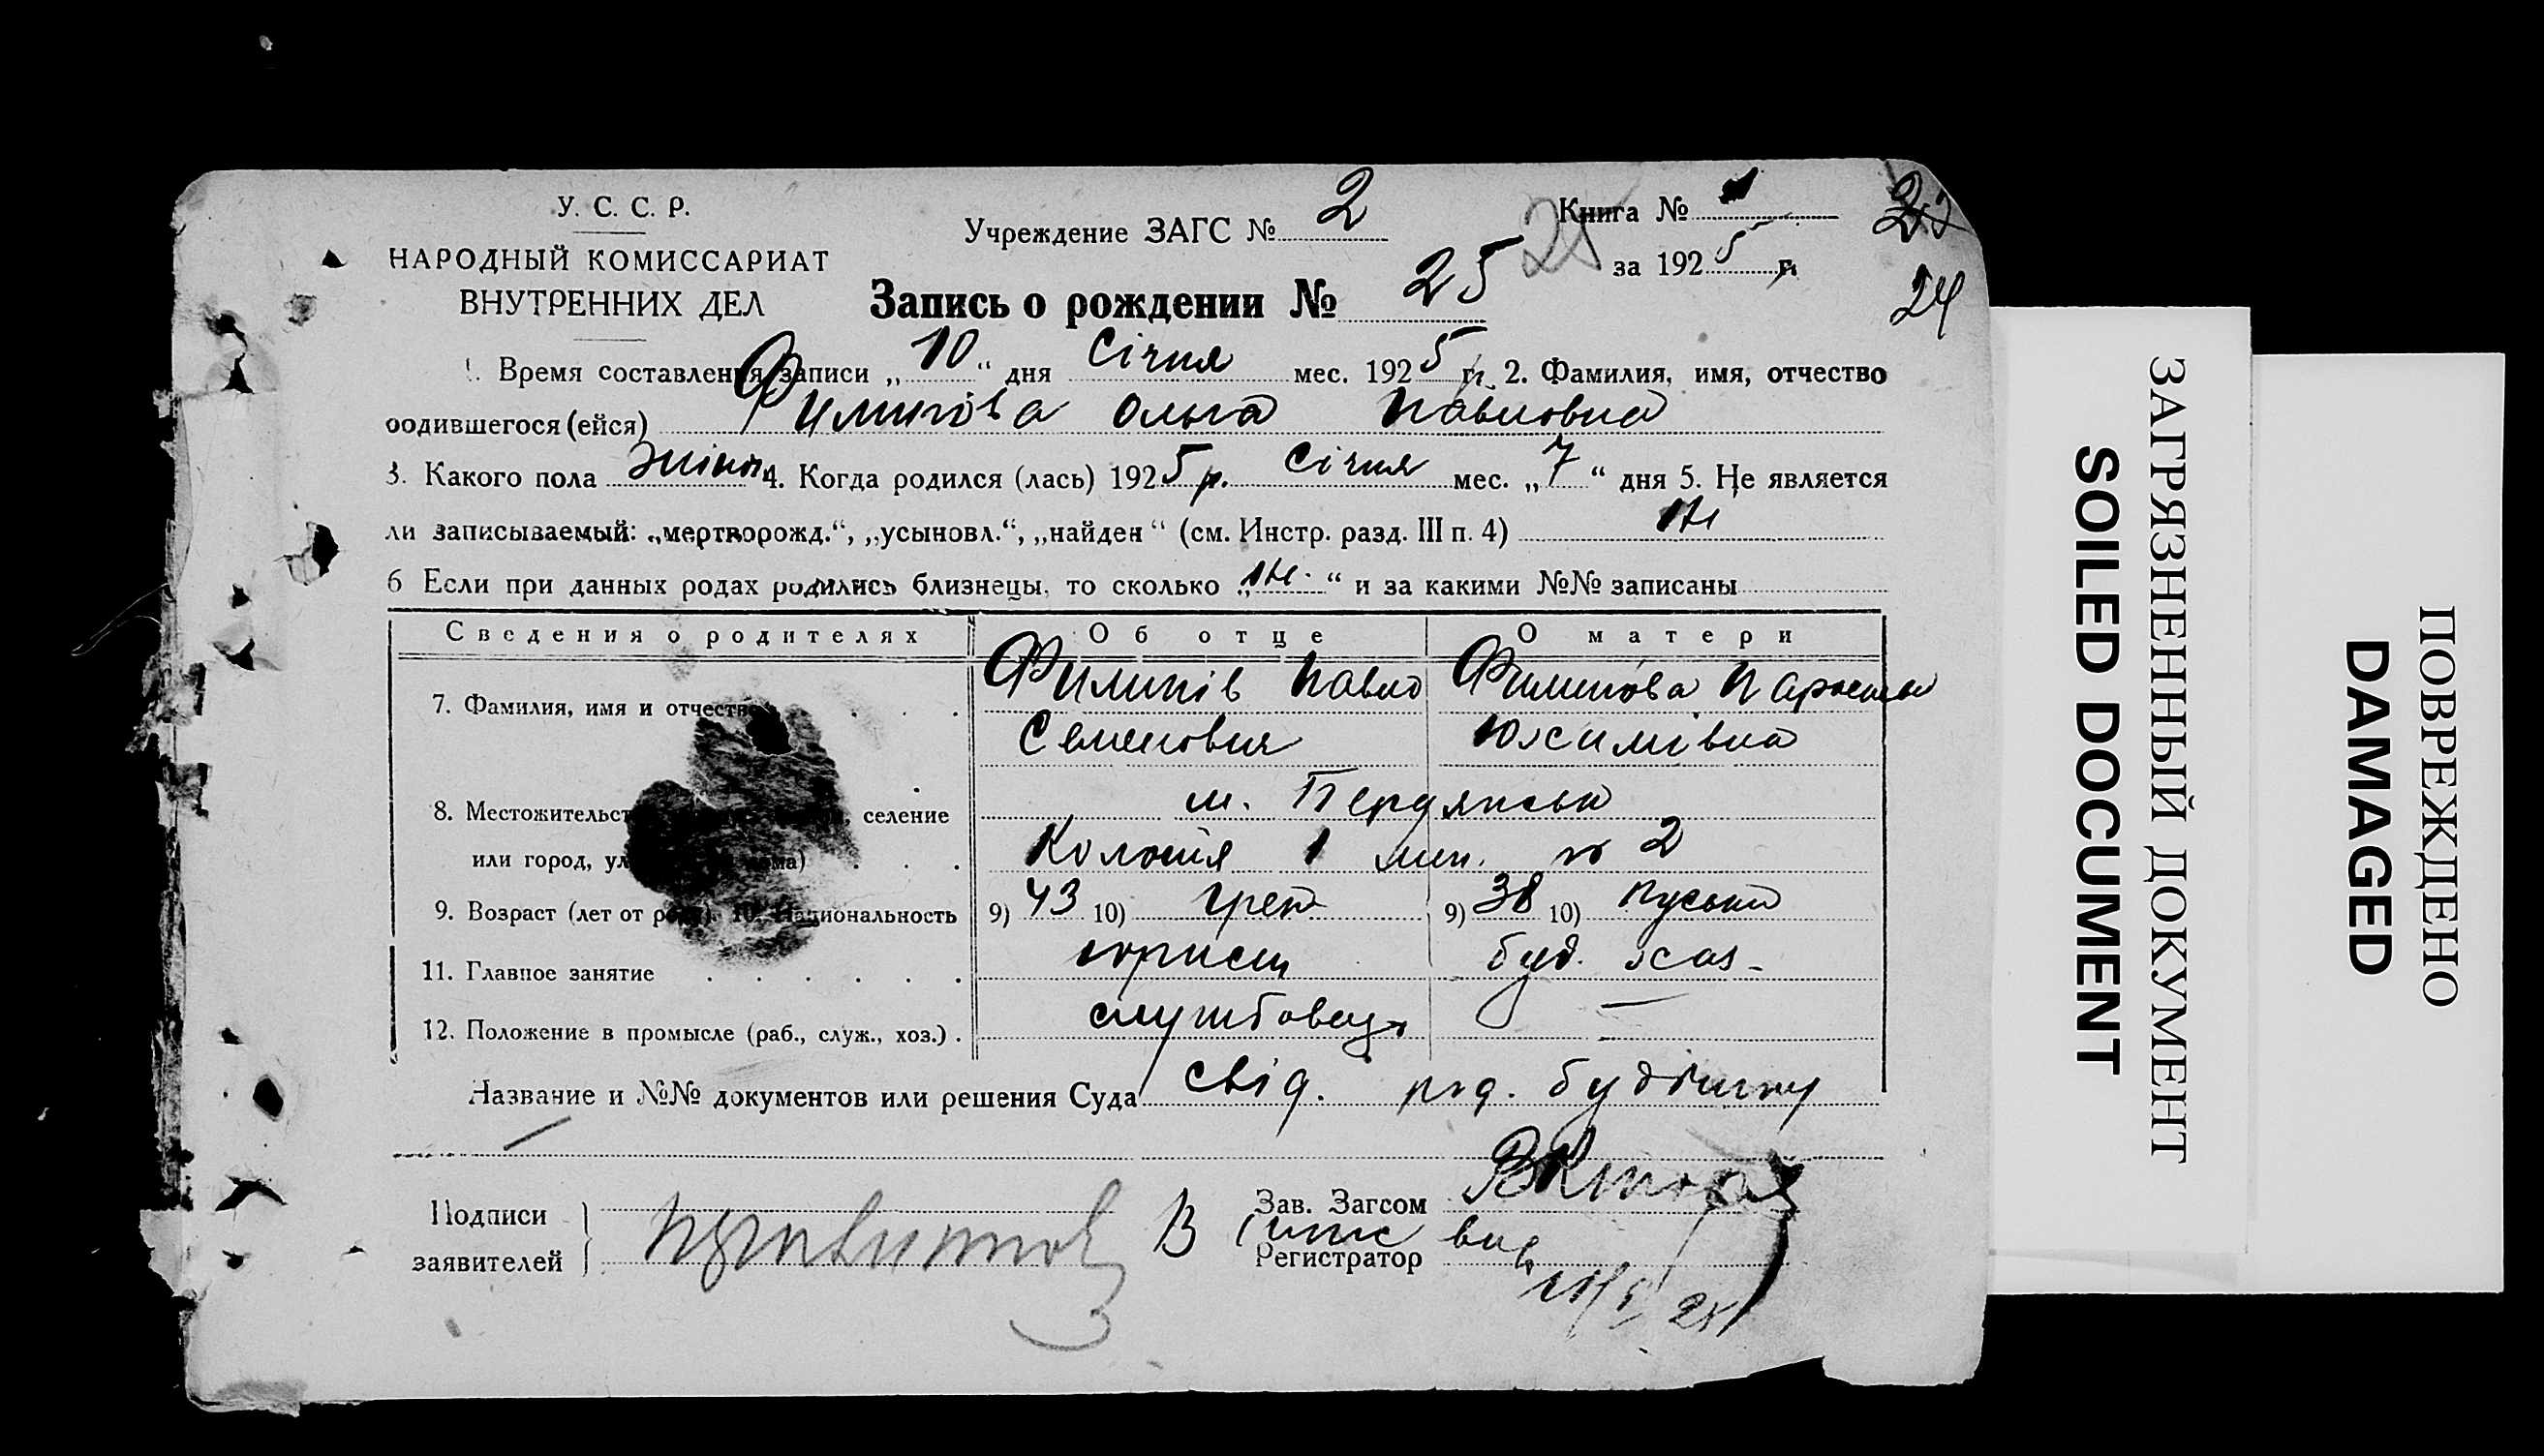 У. С. С. Р.
НАРОДНЫЙ КОМИССАРИАТ
ВНУТРЕННИХ ДЕЛ
Учреждение ЗАГС № 2
Книга № 1
за 1925 р.
25
23
24
Запись о рождении № 25
1. Время составления записи „10“ дня Січня мес. 1925 р. 2. Фамилия, имя, отчество
родившегося (ейся) Филипова Ольга Павловна
3. Какого пола жіноч. 4. Когда родился (лась) 1925 р. Січня мес. „7“ дня 5. Не является
ли записываемый: „мертворожд.“, „усыновл.“, „найден“ (см. Инстр. разд. III п. 4) ні
6 Если при данных родах родились близнецы, то сколько „ні.“ и за какими №№ записаны
Сведения о родителях Об отце О матери
7. Фамилия, имя и отчество Филипів Павло Филипова
Семенович Юхимівна
8. Местожительст селение м. Бердянськ
или город, ул дома) Колонія 1 № 2
9. Возраст (лет от роду) 10. Национальность 9) 43 10) грек 9) 38 10) руська
11. Главное занятие юрист буд. хаз-
12. Положение в промысле (раб., служ., хоз.) службовець —
Название и №№ документов или решения Суда свід. род. будинку
Подписи
заявителей
Зав. Загсом
Регистратор
ЗАГРЯЗНЕННЫЙ ДОКУМЕНТ
SOILED DOCUMENT
ПОВРЕЖДЕНО
DAMAGED